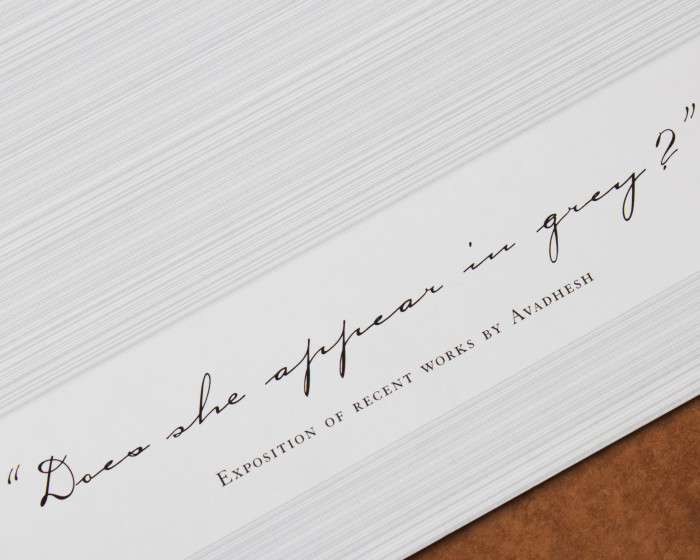 “Does she appear in grey?”
Exposition of recent works by Avadhesh